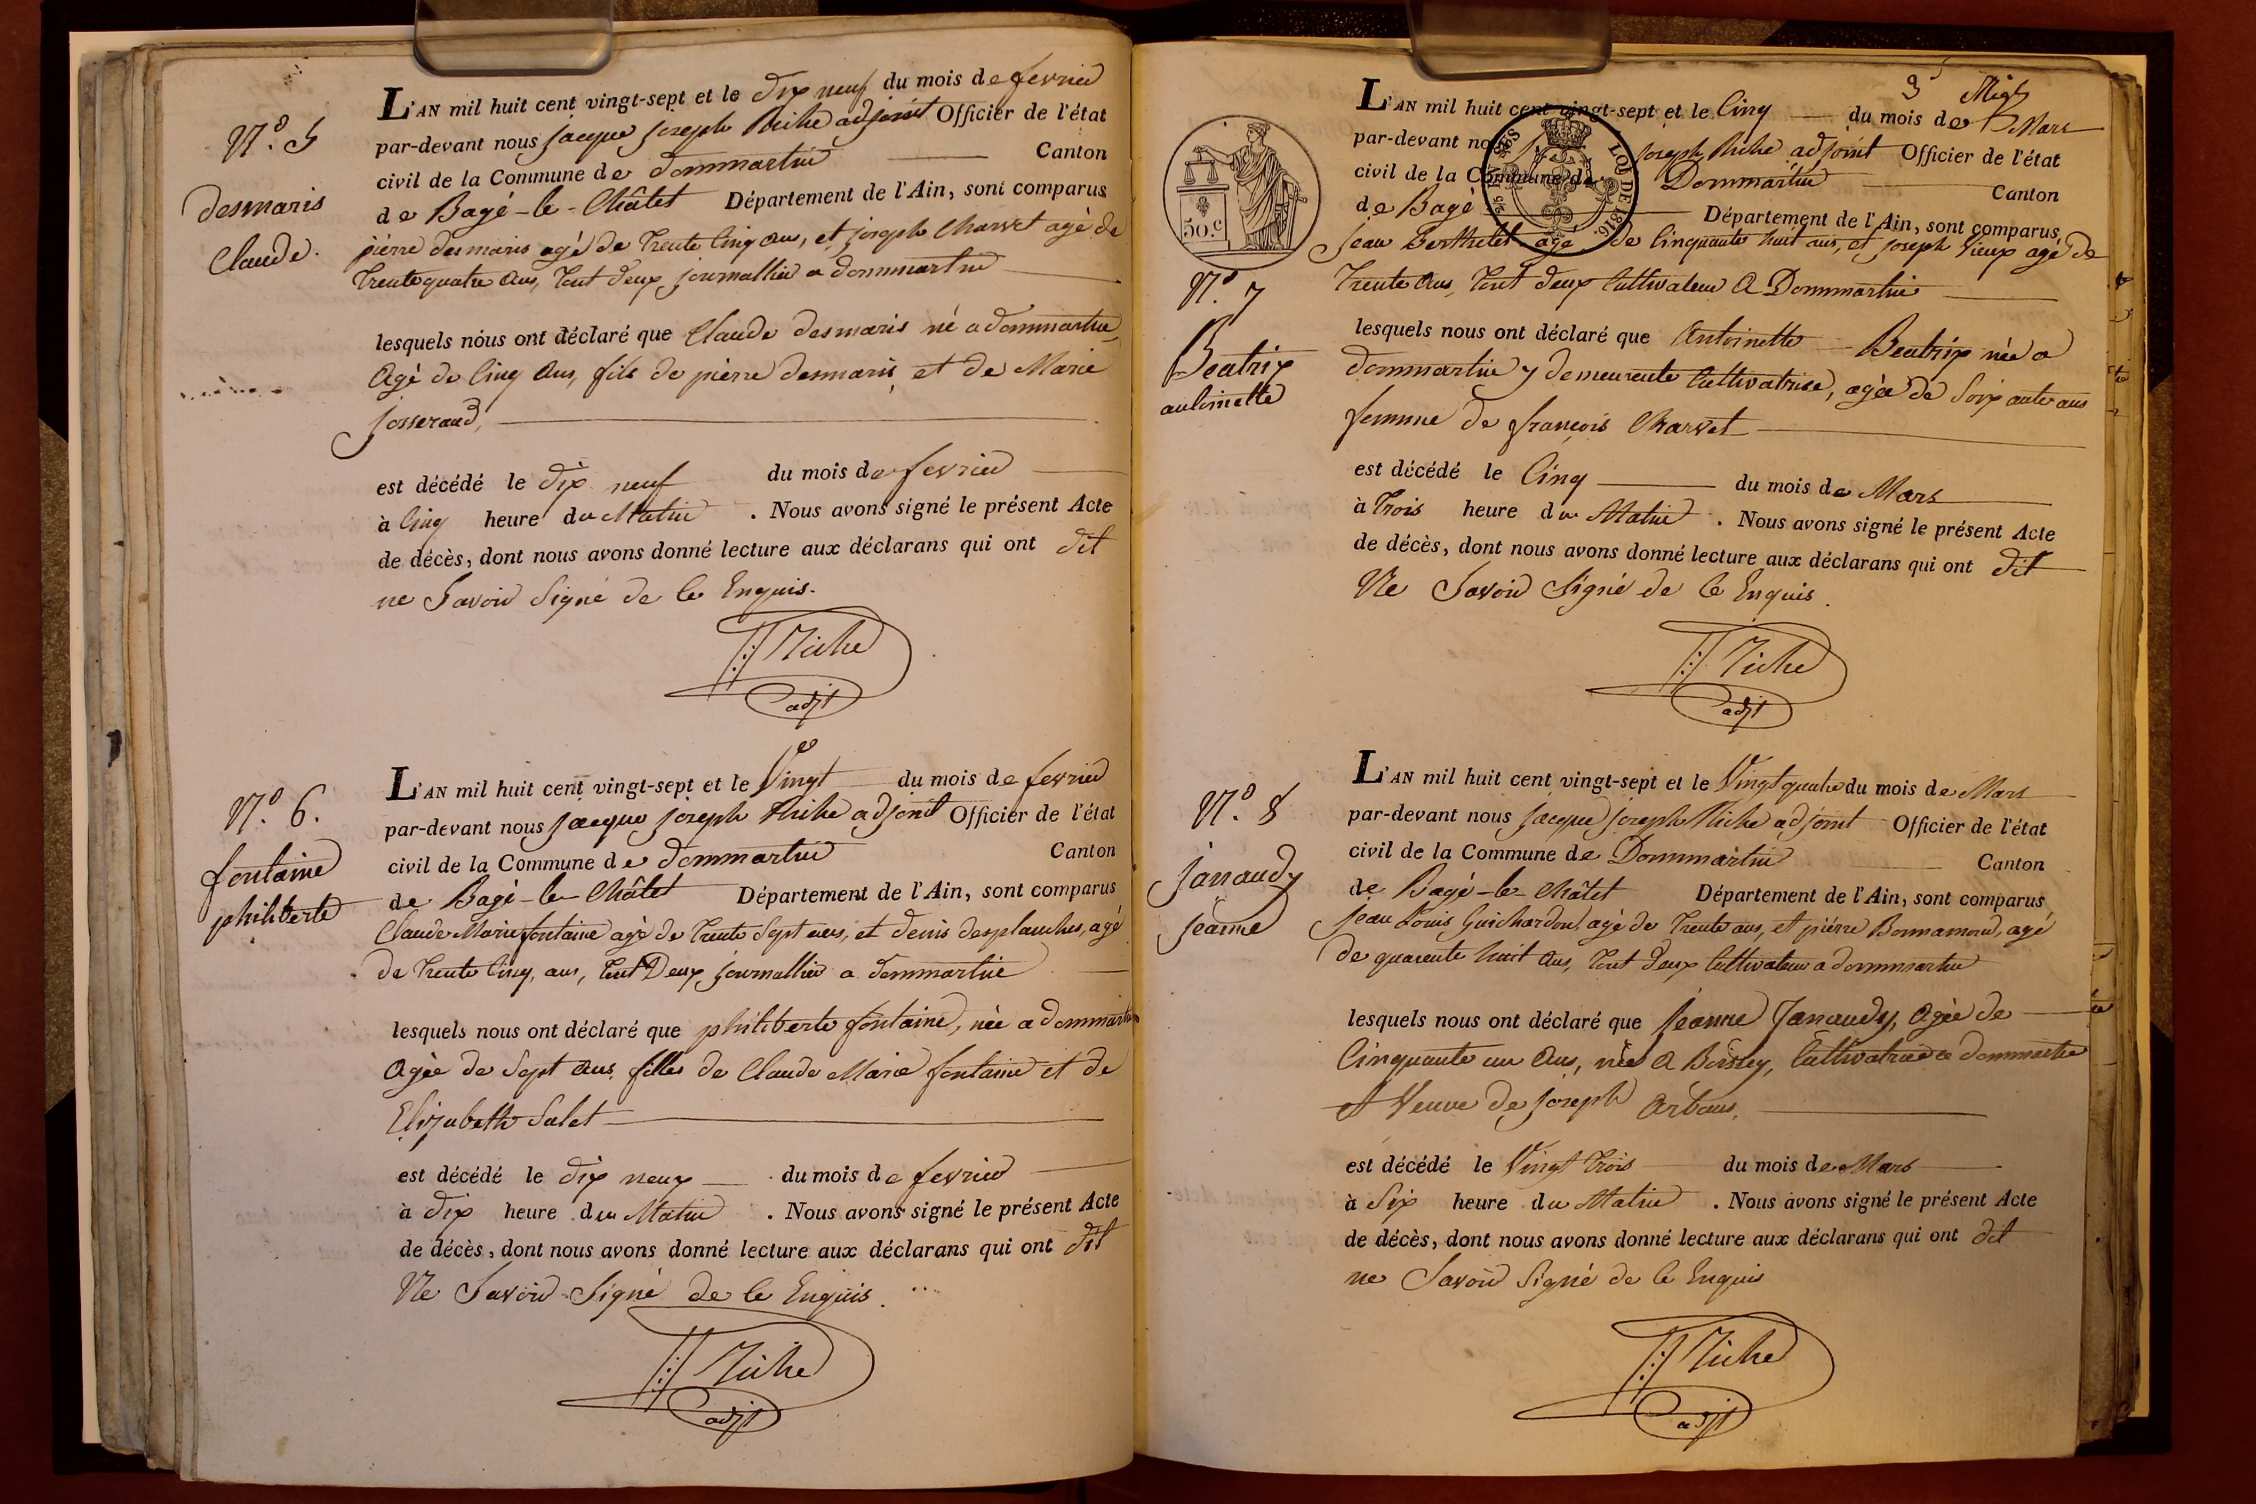 N.o 5
desmaris
Claude.
L'AN mil huit cent vingt-sept et le dix neuf du mois de fevrier
par-devant nous jacque joseph Riche adjoint Officier de l'état
civil de la Commune de dommartin Canton
de Bagé-le-Châtel Département de l'Ain, sont comparus
pierre desmaris agé de trente cinq ans, et joseph Charvet agé de
trente quatre ans, tout deux journallier a dommartin
lesquels nous ont déclaré que Claude desmaris né a dommartin,
agé de cinq ans, fils de pierre desmaris et de Marie
josserand,
est décédé le dix neuf du mois de fevrier
à cinq heure du Matin . Nous avons signé le présent Acte
de décès, dont nous avons donné lecture aux déclarans qui ont dit
ne Savoir Signé de ce Enquis.
Riche
adjt
N.o 6.
fontaine
philiberte
L'AN mil huit cent vingt-sept et le Vingt du mois de fevrier
par-devant nous jacque joseph Riche adjoint Officier de l'état
civil de la Commune de dommartin Canton
de Bagé-le-Châtel Département de l'Ain, sont comparus
Claude Marie fontaine agé de trente Sept ans, et denis desplanches, agé
de trente cinq, ans, tout Deux journallier a dommartin
lesquels nous ont déclaré que philiberte fontaine, née a dommartin
agée de Sept ans, filles de Claude Marie fontaine et de
Elizabeth Salet
est décédé le dix neuf du mois de fevrier
à dix heure du Matin . Nous avons signé le présent Acte
de décès, dont nous avons donné lecture aux déclarans qui ont dit
Ne Savoir Signé de ce Enquis.
Riche
adjt
3
50.c
LOI DE 1816.
N.o 7
Beatrix
antoinette
L'AN mil huit cent vingt-sept et le Cinq du mois de Mars
par-devant nous joseph Riche adjoint Officier de l'état
civil de la Commune de Dommartin Canton
de Bagé Département de l'Ain, sont comparus
jean Berthelet agé de cinquante huit ans, et joseph Vieux agé de
trente ans, tout deux Cultivateur a Dommartin
lesquels nous ont déclaré que Antoinette Beatrix née a
dommartin y demeurente Cultivatrise, agée de Soixante ans
femme de françois Charvet
est décédé le Cinq du mois de Mars
à trois heure du Matin . Nous avons signé le présent Acte
de décès, dont nous avons donné lecture aux déclarans qui ont dit
Ne Savoir Signé de ce Enquis.
Riche
adjt
N.o 8
janaudy
jeanne
L'AN mil huit cent vingt-sept et le Vingt quatre du mois de Mars
par-devant nous jacque joseph Riche adjoint Officier de l'état
civil de la Commune de Dommartin Canton
de Bagé-le-Châtel Département de l'Ain, sont comparus
jean Louis Guichardon, agé de trente ans, et pierre Bonnamour, agé
de quarente huit ans, tout deux Cultivateur a dommartin
lesquels nous ont déclaré que jeanne Janaudy, agée de
cinquante un ans, née a Boissey, Cultivatrice a dommartin
et Veuve de joseph Arbans,
est décédé le Vingt trois du mois de Mars
à Six heure du Matin . Nous avons signé le présent Acte
de décès, dont nous avons donné lecture aux déclarans qui ont dit
ne Savoir Signé de ce Enquis
Riche
adjt